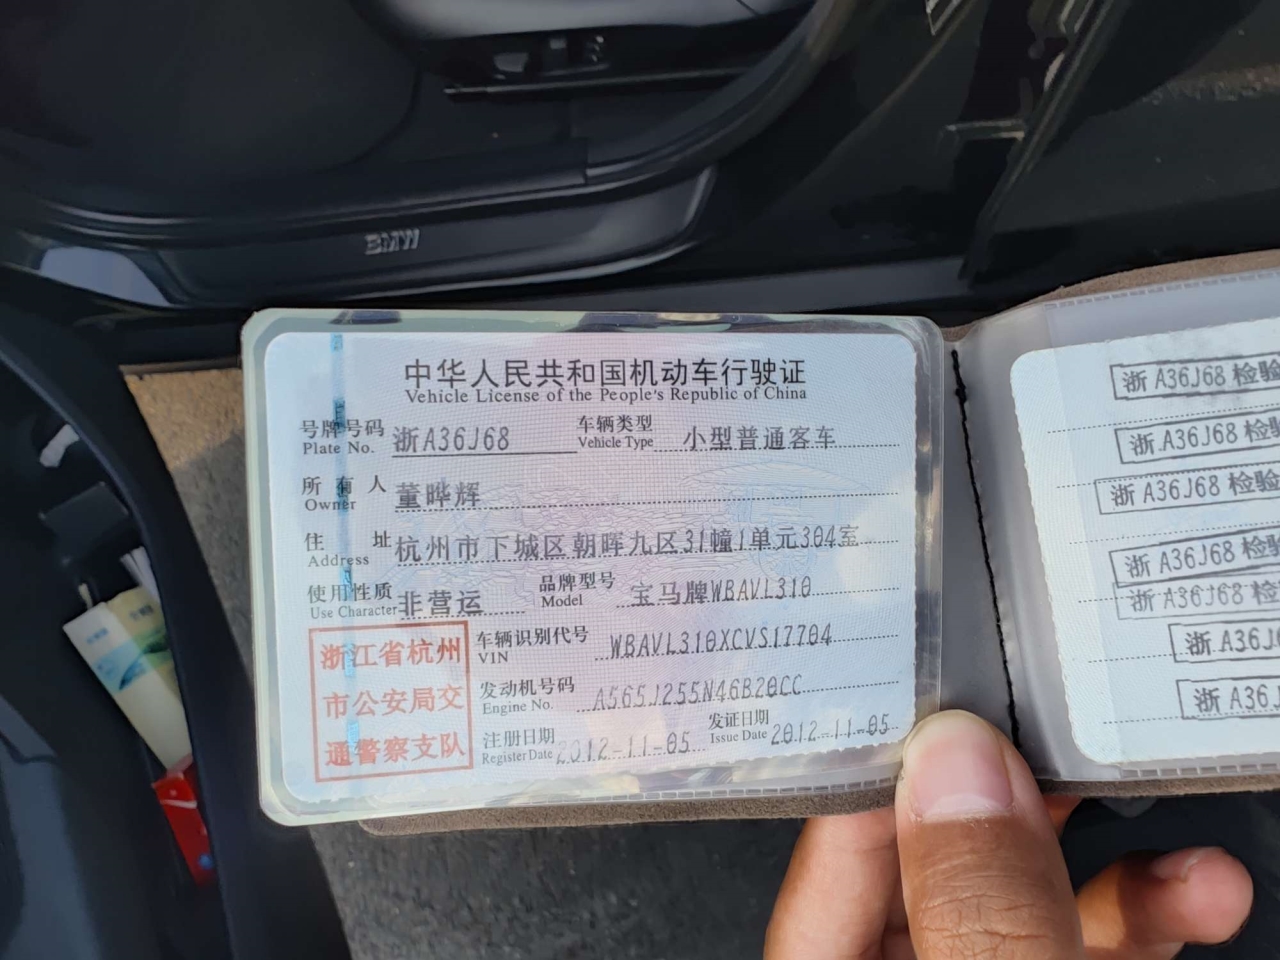 BMW
中华人民共和国机动车行驶证
Vehicle License of the People's Republic of China
号牌号码 浙A36J68 车辆类型 小型普通客车
Plate No. Vehicle Type
所有人 董晔辉
Owner
住址 杭州市下城区朝晖九区31幢1单元304室
Address
使用性质 非营运 品牌型号 宝马牌WBAVL310
Use Character Model
浙江省杭州
市公安局交
通警察支队
车辆识别代号 WBAVL310XCVS17704
VIN
发动机号码 A565J255N46B20CC
Engine No.
注册日期 2012-11-05 发证日期 2012-11-05
Register Date Issue Date
浙A36J68检验
浙A36J68检验
浙A36J68检验
浙A36J68检验
浙A36J68检验
浙A36J
浙A36J